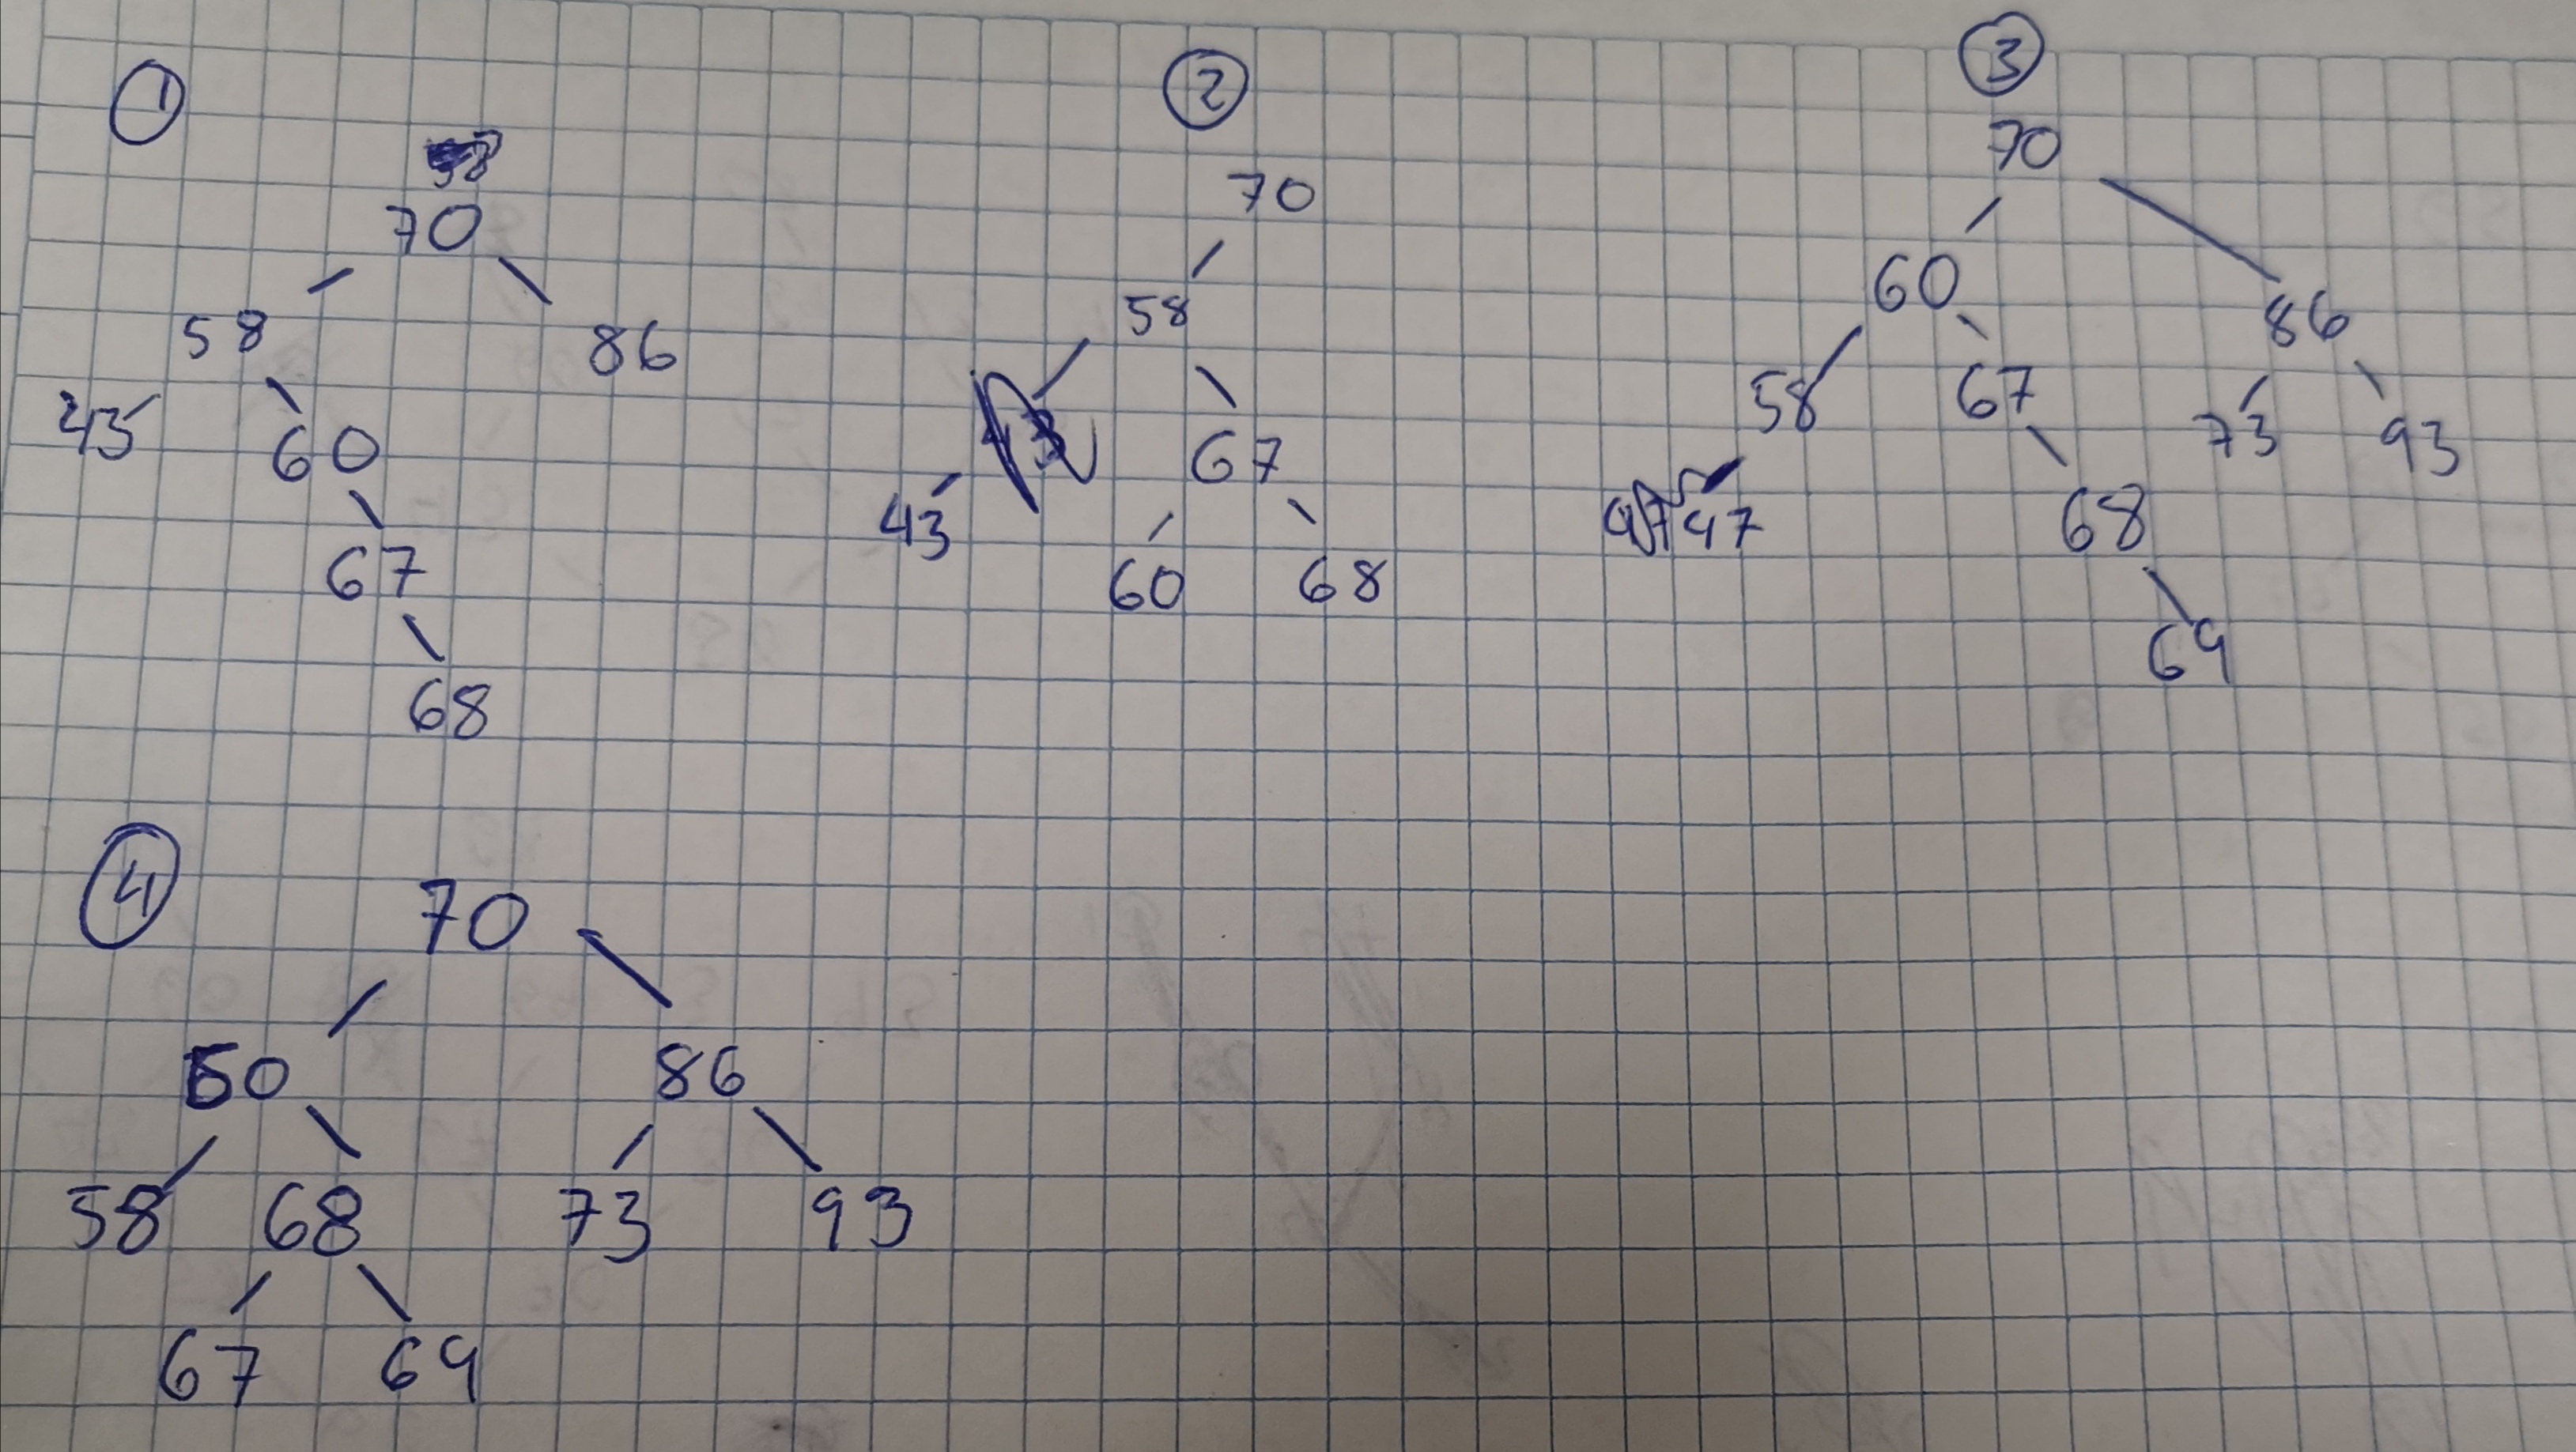 1
70
58 86
43
60
67
68
2
70
58
67
43
60 68
3
70
60
86
58 67
73 93
68
47
69
4
70
60 86
58 68 73 93
67 69